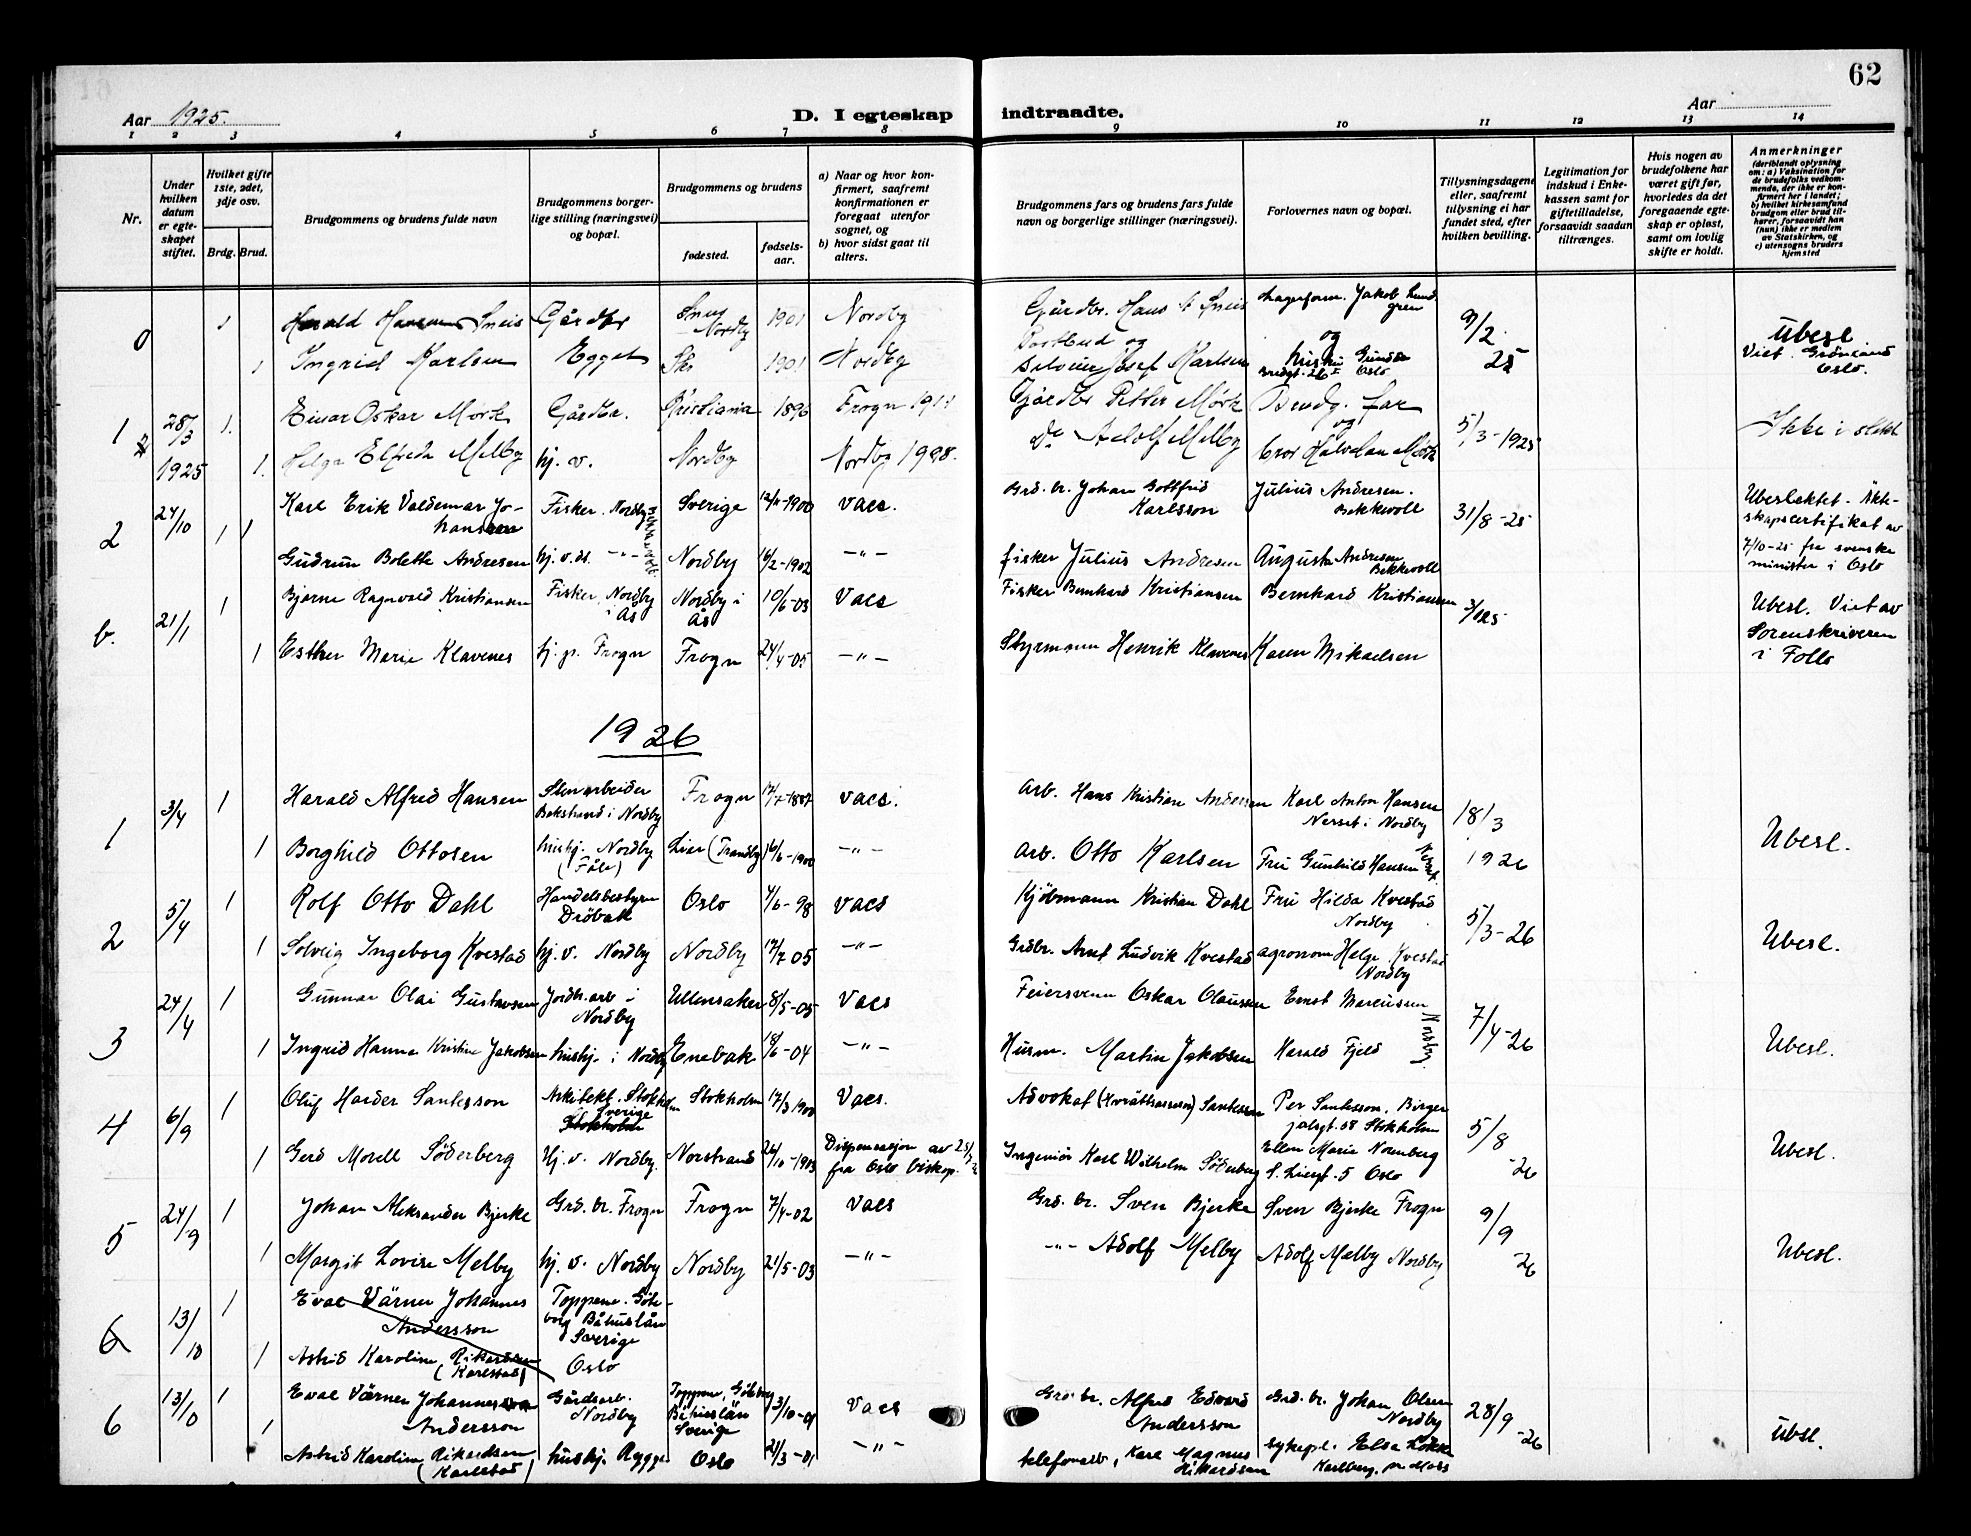 62
Aar 1925.
D. I egteskap indtraadte.
Aar
1 2 3 4 5 6 7 8 9 10 11 12 13 14
Nr.
Under hvilken datum er egteskapet stiftet.
Hvilket gifte 1ste, 2det, 3dje osv.
Brdg. Brud.
Brudgommens og brudens fulde navn
Brudgommens borgerlige stilling (næringsvei) og bopæl.
Brudgommens og brudens
fødested.
fødselsaar.
a) Naar og hvor konfirmert, saafremt konfirmationen er foregaat utenfor sognet, og
b) hvor sidst gaat til alters.
Brudgommens fars og brudens fars fulde navn og borgerlige stillinger (næringsvei).
Forlovernes navn og bopæl.
Tillysningsdagene eller, saafremt tillysning ei har fundet sted, efter hvilken bevilling.
Legitimation for indskud i Enkekassen samt for giftetilladelse, forsaavidt saadan tiltrænges.
Hvis nogen av brudefolkene har været gift før, hvorledes da det foregaaende egteskap er opløst, samt om lovlig skifte er holdt.
Anmerkninger
(deriblandt oplysning om: a) Vaksination for de brudefolks vedkommende, der ikke er konfirmert her i landet; b) hvilket kirkesamfund brudgom eller brud tilhører, forsaavidt han (hun) ikke er medlem av Statskirken, og c) utensogns bruders hjemsted
0 1 Harald Hansen Sneis Gårdbr Nordby 1901 Nordby Gårdbr. Hans Sneis Jakob Lundgren og 9/2 25 Ubesl
1 Ingrid Karlsen Egget Ski 1901 Nordby Postbud og Josef Karlsen Oslo Viet. Grønland Oslo.
1 28/3 1925 1. Einar Oskar Mørk Gårdbr. Kristiania 1896 Frogn 1911 Gårdbr Petter Mørk Brudg. far og 5/3-1925 Ikke i slekt
1. Helga Elfrida Melby hj. v. Nordby Nordby Do Adolf Melby bror Halvdan Mørk
2 24/10 1 Karl Erik Valdemar Johansson Fisker. Nordby Sverige 12/11-1900 Vacs. Grd. br. Johan Gottfrid Karlsson Julius Andresen. Bekkevoll 31/8-25 Ubeslektet. Äktskapscertifikat av 7/10-25 fra svenske minister i Oslo
1 Gudrun Bolette Andresen hj. v. ds. -"- Nordby 16/2-1902 -"- fisker Julius Andresen Augusta Andresen Bekkevoll
b. 21/1 1 Bjarne Ragnvald Kristiansen Fisker, Nordby i Ås Nordby i Ås 10/6-03 Vacs Fisker Bernhard Kristiansen Bernhard Kristiansen Ubesl. Viet av Sorenskriveren i Follo
1 Esther Marie Klavenes hj. p. Frogn Frogn 24/4-05 -"- Styrmann Henrik Klavenes Karen Mikaelsen
1926
1 3/4 1 Harald Alfred Hansen Stenarbeider Bekstrand i Nordby Frogn 17/7-1887 Vacs. Arb. Hans Kristian Andersen Karl Anton Hansen Nerset i Nordby 18/3 1926 Ubesl.
1 Borghild Ottosen hushj. Nordby Lier (Tranby) 16/6-1900 -"- Arb. Otto Karlsen Fru Gunhild Hansen
2 5/4 1 Rolf Otto Dahl Handelsbestyrer Drøbak Oslo 4/6-98 Vacs Kjøbmann Kristian Dahl Fru Hilda Kvestad Nordby 5/3-26 Ubesl.
1 Solveig Ingeborg Kvestad hj. v. Nordby Nordby 17/7 05 -"- Grdbr. Arnt Ludvik Kvestad agronom Helge Kvestad Nordby
3 24/4 1 Gunnar Olai Gustavsen Jordb. arb i Nordby Ullensaker 8/5-05 Vacs Feiersvenn Oskar Olaussen Ernst Marcussen Nordby 7/4-26 Ubesl.
1 Ingrid Hanna Kristine Jakobsen hushj. i Nordby Enebak 18/6-04 -"- Husm. Martin Jakobsen Harald Fjeld
4 6/9 1 Oluf Harder Santesson Arkitekt. Stokholm Sverige Stokholm Stokholm 17/3 1900 Vacs. Advokat Santesson Per Santesson. Birger jalsgt. 58 Stokholm 5/8-26 Ubesl.
1 Gerd Morell Söderberg Hj. v. Nordby. Norstrand 26/10-1903 Dispensasjon av 25/ fra Oslo biskop. Ingeniør Karl Wilhelm Söderberg Ellen Marie Norenberg 5 Oslo
5 24/9 1 Johan Aleksander Bjerke Grd. br. Frogn Frogn 7/4-02 Vacs Grd. br. Sven Bjerke Sven Bjerke Frogn 9/9-26 Ubesl.
1 Margit Lovise Melby hj. v. Nordby Nordby 21/5-03 -"- -"- Adolf Melby Adolf Melby Nordby
6 13/10 1 Eval Värner Johannes Andersson Toppene. Göteborg Båhuslän Sverige
1 Astrid Karoline Rikardsen (Karlstad) Oslo
6 13/10 1 Eval Värner Johannes Andersson Gårdsarb. Nordby Toppene, Göteborg Båhuslän Sverige 3/10-01 Vacs Grd. br. Alfred Edvard Andersson Grd. br. Johan Olsen Nordby 28/9-26 Ubsl.
1 Astrid Karoline Rikardsen (Karlstad) hushj. Rygge Oslo 21/3-01 -"- telefonarb, Karl Magnus Rikardsen sykepl. Elsa Løkke Karlberg, pr Moss